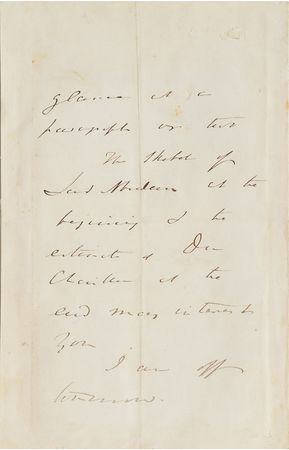 glance at a
paragraph or two
The sketch of
Lord Aberdeen at the
beginning & the
estimate of Dr
Chalmers at the
end may interest
you
I am